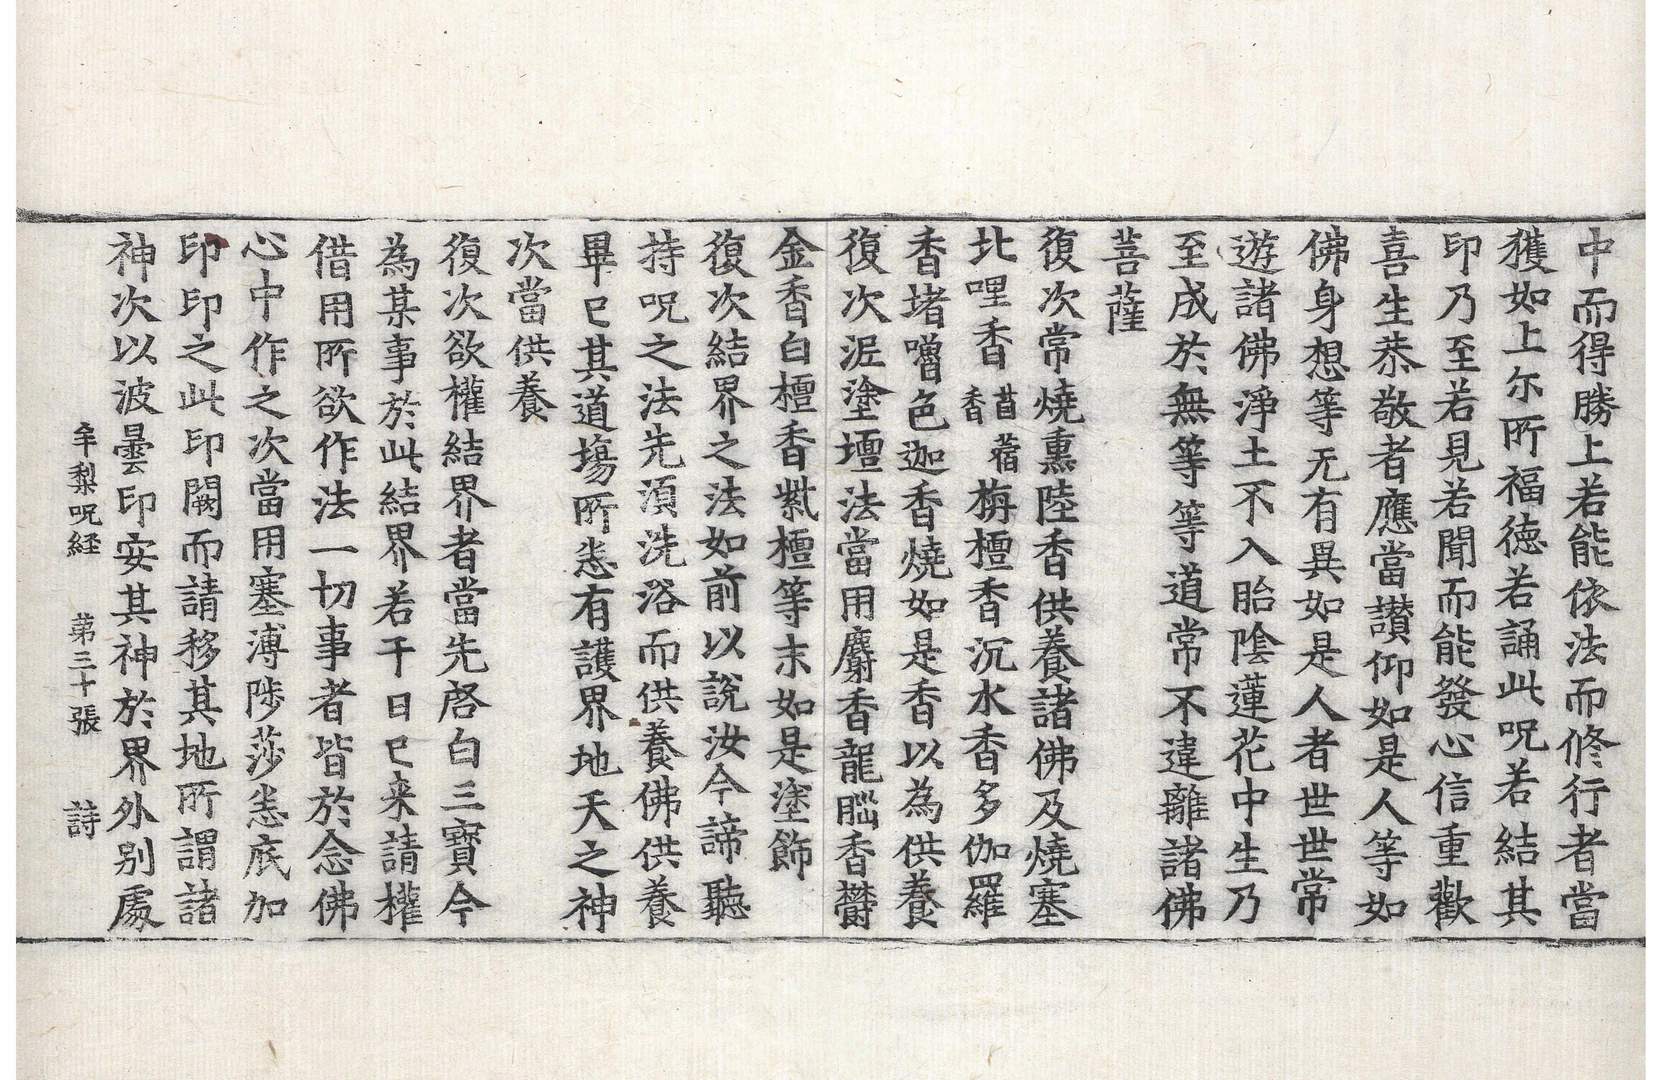 中而得勝上若能依法而修行者當
獲如上尔所福德若誦此呪若結其
印乃至若見若聞而能發心信重歡
喜生恭敬者應當讃仰如是人等如
佛身想等无有異如是人者世世常
遊諸佛淨土不入胎陰蓮花中生乃
至成於無等等道常不違離諸佛
菩薩
復次常燒熏陸香供養諸佛及燒塞
北哩香苜蓿香栴檀香沉水香多伽羅
香堵嚕色迦香燒如是香以為供養
復次泥塗壇法當用麝香龍腦香欝
金香白檀香紫檀等末如是塗飾
復次結界之法如前以說汝今諦聽
持呪之法先湏洗浴而供養佛供養
畢已其道場所悉有護界地天之神
次當供養
復次欲權結界者當先啓白三寶今
為某事於此結界若干日已来請權
借用所欲作法一切事者皆於念佛
心中作之次當用塞漙陟莎悉底加
印印之此印闕而請移其地所謂諸
神次以波曇印安其神於界外別處
牟梨呪経 第三十張 詩